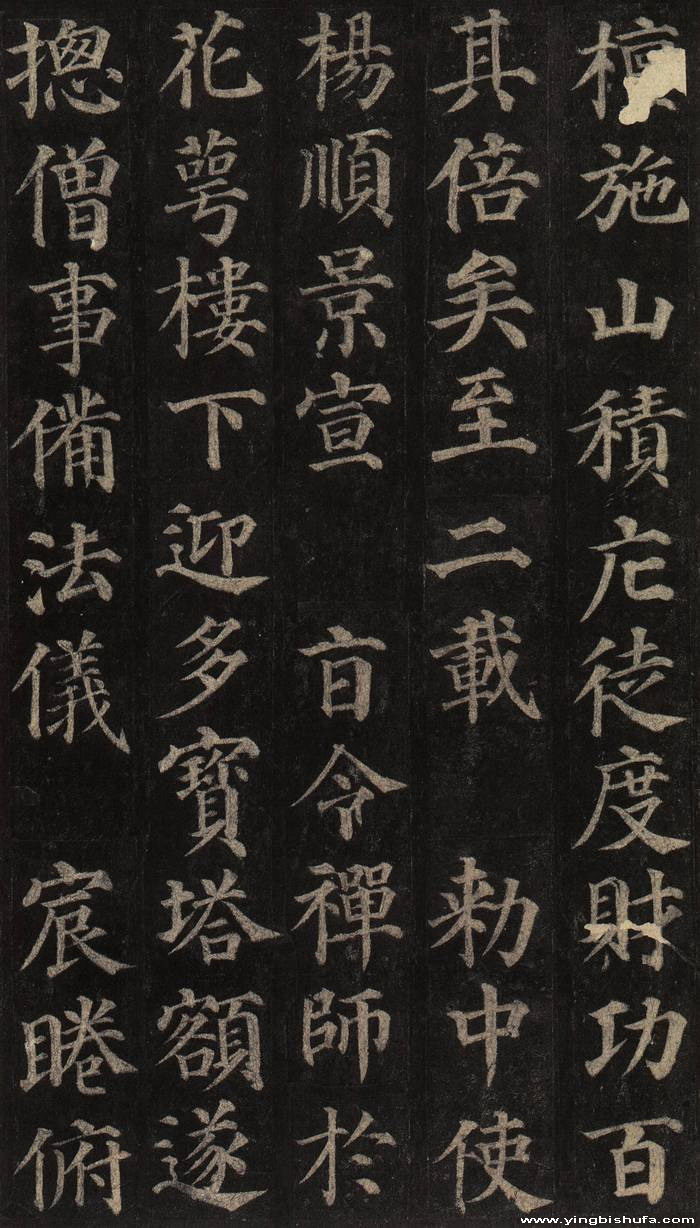 檀施山積庀徒度財功百
其倍矣至二載 勑中使
楊順景宣 旨令禪師於
花萼樓下迎多寶塔額遂
揔僧事備法儀 宸睠俯
www.yingbishufa.com